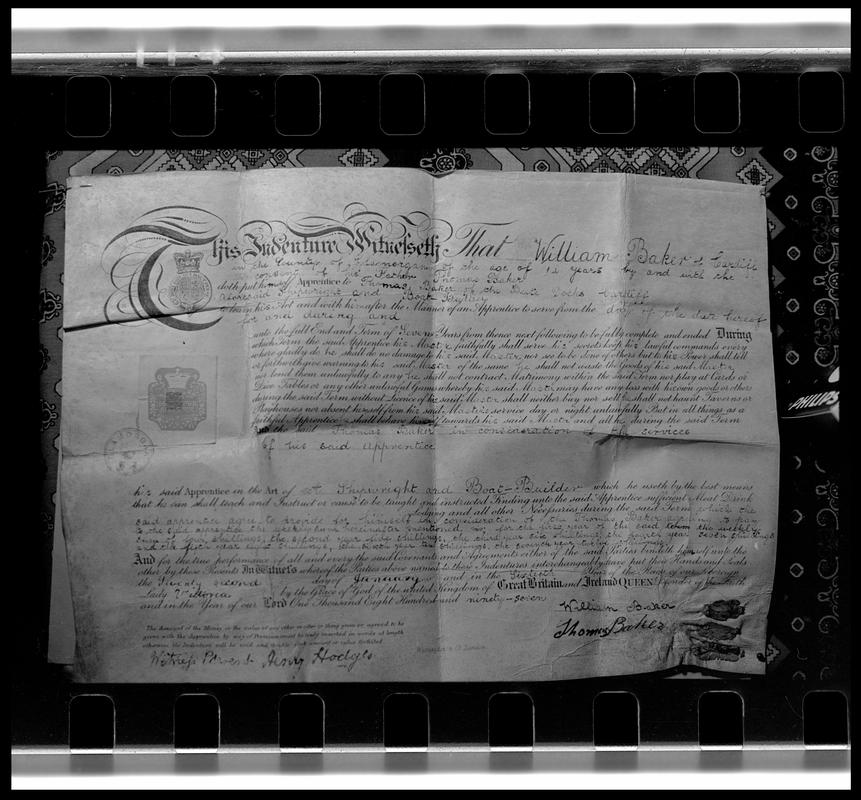 This Indenture Witnesseth That William Baker of Cardiff
in the County of Glamorgan of the age of 14 years by and with the
consent of his Father Thomas Baker
doth put himself Apprentice to Thomas Baker of the Docks Cardiff
aforesaid Shipwright and Boat Builder
to learn his Art and with him after the Manner of an Apprentice to serve from the day of the date hereof
for and during and
unto the full End and Term of Seven Years from thence next following to be fully complete and ended During
which Term the said Apprentice his Master faithfully shall serve his secrets keep his lawful commands every
where gladly do he shall do no damage to his said Master nor see to be done of others but to his Power shall tell
or forthwith give warning to his said Master of the same he shall not waste the Goods of his said Master
nor lend them unlawfully to any he shall not contract Matrimony within the said Term nor play at Cards or
Dice Tables or any other unlawful Games whereby his said Master may have any loss with his own goods or others
during the said Term without Licence of his said Master shall neither buy nor sell he shall not haunt Taverns or
Playhouses nor absent himself from his said Master's service day or night unlawfully But in all things as a
faithful Apprentice he shall behave himself towards his said Master and all his during the said Term
And the said Thomas Baker in consideration of the services
of his said Apprentice
his said Apprentice in the Art of a Shipwright and Boat-Builder which he useth by the best means
that he can shall teach and Instruct or cause to be taught and instructed Finding unto the said Apprentice sufficient Meat Drink
Lodging and all other Necessaries during the said Term which the
said apprentice agree to provide for himself in consideration of the Thomas Baker to pay
to the said apprentice the weekly sums hereinafter mentioned for the first year of the said term the weekly
sum of four shillings, the second year five shillings, the third year six shillings, the fourth year seven shillings
and the fifth year eight shillings, the sixth year ten shillings the seventh year shillings
And for the true performance of all and every the said Covenants and Agreements either of the said Parties bindeth himself unto the
other by these Presents In Witness whereof the Parties above named to these Indentures interchangeably have put their Hands and Seals
the Twenty second day of January and in the Sixtieth Year of the Reign of our Sovereign
Lady Victoria by the Grace of God of the united Kingdom of Great Britain and Ireland QUEEN Defender of the Faith
and in the Year of our Lord One Thousand Eight Hundred and ninety-seven
William Baker
Thomas Baker
The Amount of the Money or the value of any other matter or thing given or agreed to be
given with the Apprentice by way of Premium must be truly inserted in words at length
otherwise the Indenture will be void and double that amount or value forfeited
Witness Present Henry Hodges
PHILIPS